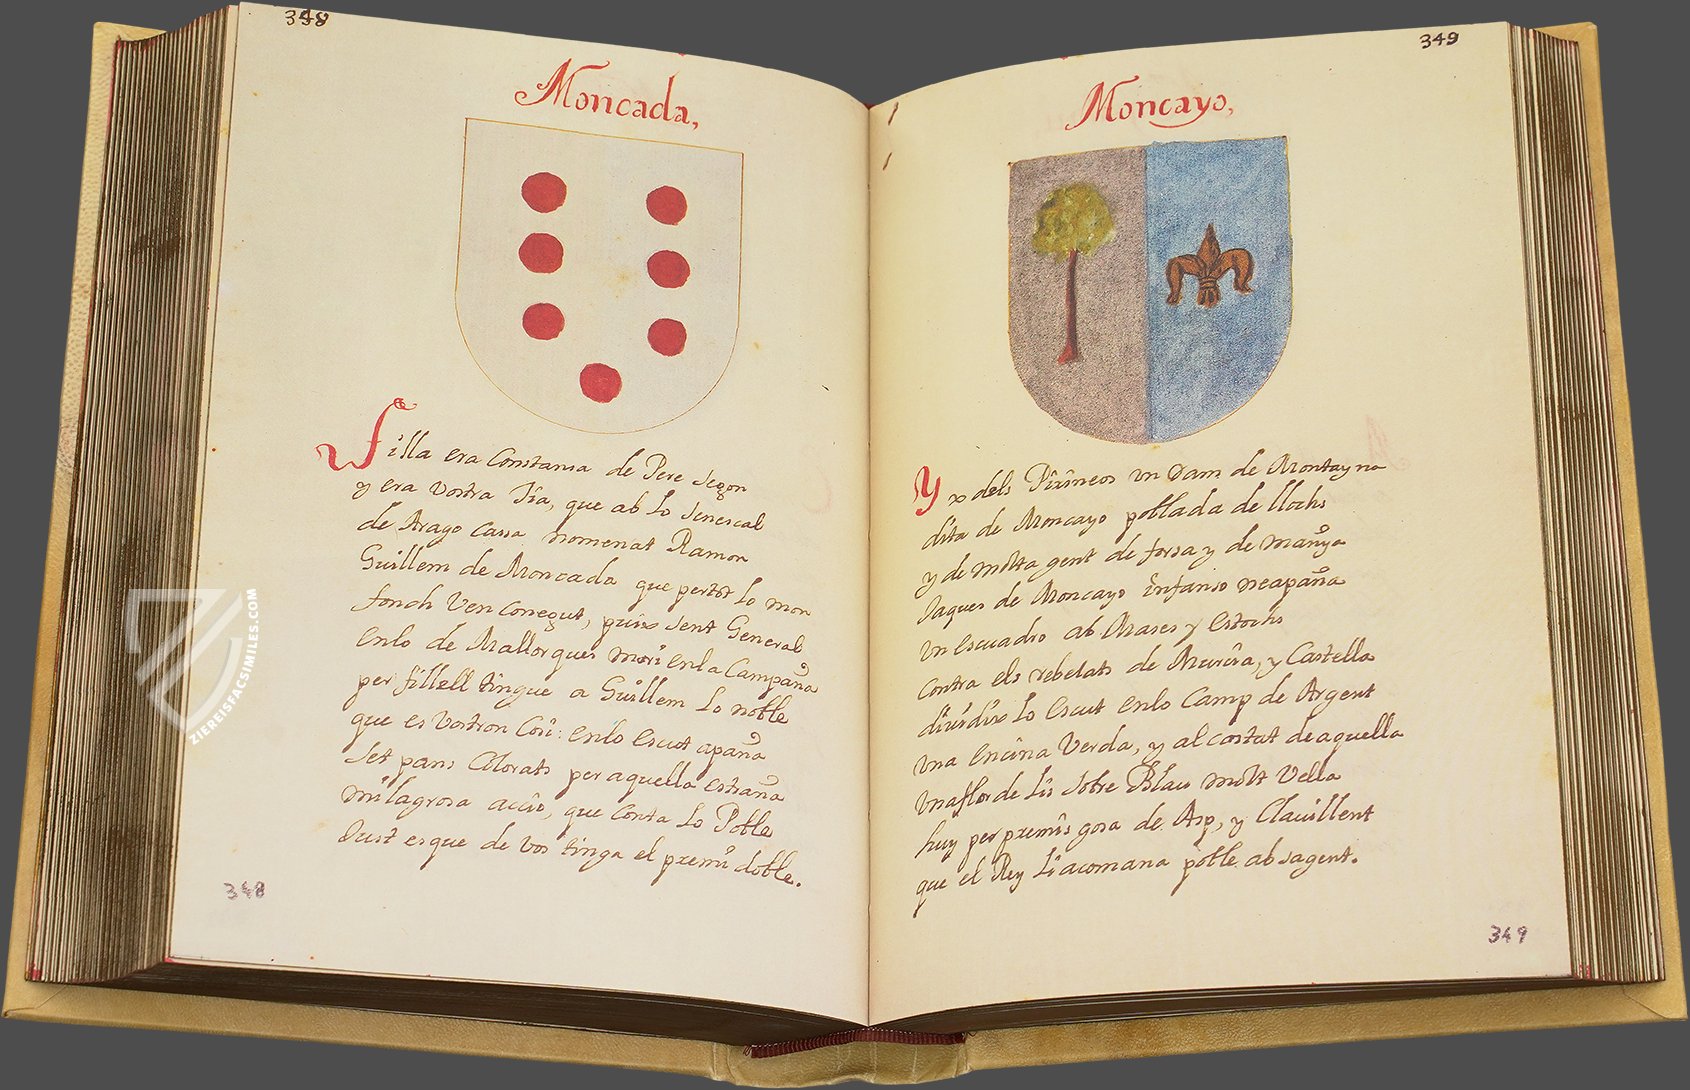 348
Moncada,
Filla era Constansa de Pere Segon
y era Vostra Tia, que ab lo Senescal
de Arago Cassa nomenat Ramon
Guillem de Moncada que pertot lo mon
fonch Ven Conegut, puix sent General
Enlo de Mallorques mori enla Campaña
per fillell tingue a Guillem lo noble
que es Vostron Cosi: enlo Escut apaña
Set pans Colorats per aquella estraña
milagrosa accio, que Conta lo Poble
Just es que de Vos tinga el premi doble.
348
349
Moncayo,
Yx dels Pirineos Vn Dam de Montayna
dita de Moncayo poblada de llochs
y de molta gent de forsa y de mañya
Jaques de Moncayo infanso neapaña
Vn escuadro ab Mases y Estochs
Contra els rebelats de Murcia, y Castella
diuidix lo Escut enlo Camp de Argent
Vna Encina Verda, y al costat de aquella
Vna flor de Lis sobre Blau molt Vella
huy per premis gosa de Asp, y Clauillent
que el Rey li acomana poble ab sa gent.
349
ZIEREISFACSIMILES.COM